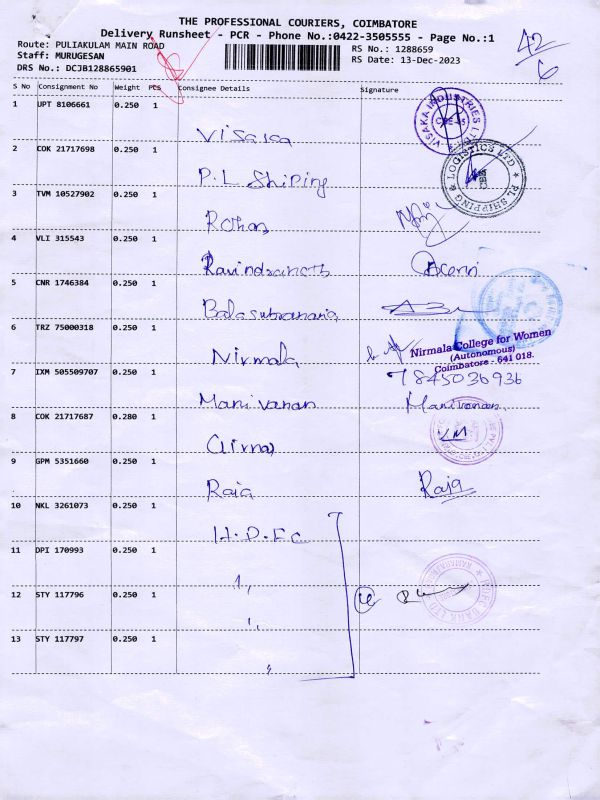 THE PROFESSIONAL COURIERS, COIMBATORE
Delivery Runsheet - PCR - Phone No.:0422-3505555 - Page No.:1
Route: PULIAKULAM MAIN ROAD
Staff: MURUGESAN
DRS No.: DCJB128865901
RS No.: 1288659
RS Date: 13-Dec-2023
42
6
S No Consignment No Weight PCS Consignee Details Signature
1 UPT 8106661 0.250 1
Visaka
VISAKA INDUSTRIES LTD
2 COK 21717698 0.250 1
P.L Shiping
PL SHIPPING LOGISTICS LTD
CBE
3 TVM 10527902 0.250 1
Rohan
4 VLI 315543 0.250 1
Ravindranath
5 CNR 1746384 0.250 1
Balasubramania
6 TRZ 75000318 0.250 1
Nirmala
Nirmala College for Women
(Autonomous)
Coimbatore - 641 018.
7 IXM 505509707 0.250 1
7845036936
Manivanan Manivanan.
8 COK 21717687 0.280 1
9 GPM 5351660 0.250 1
Raja Raja
10 NKL 3261073 0.250 1
H.D.F.C
11 DPI 170993 0.250 1
"
12 STY 117796 0.250 1
"
HDFC BANK LTD
13 STY 117797 0.250 1
"